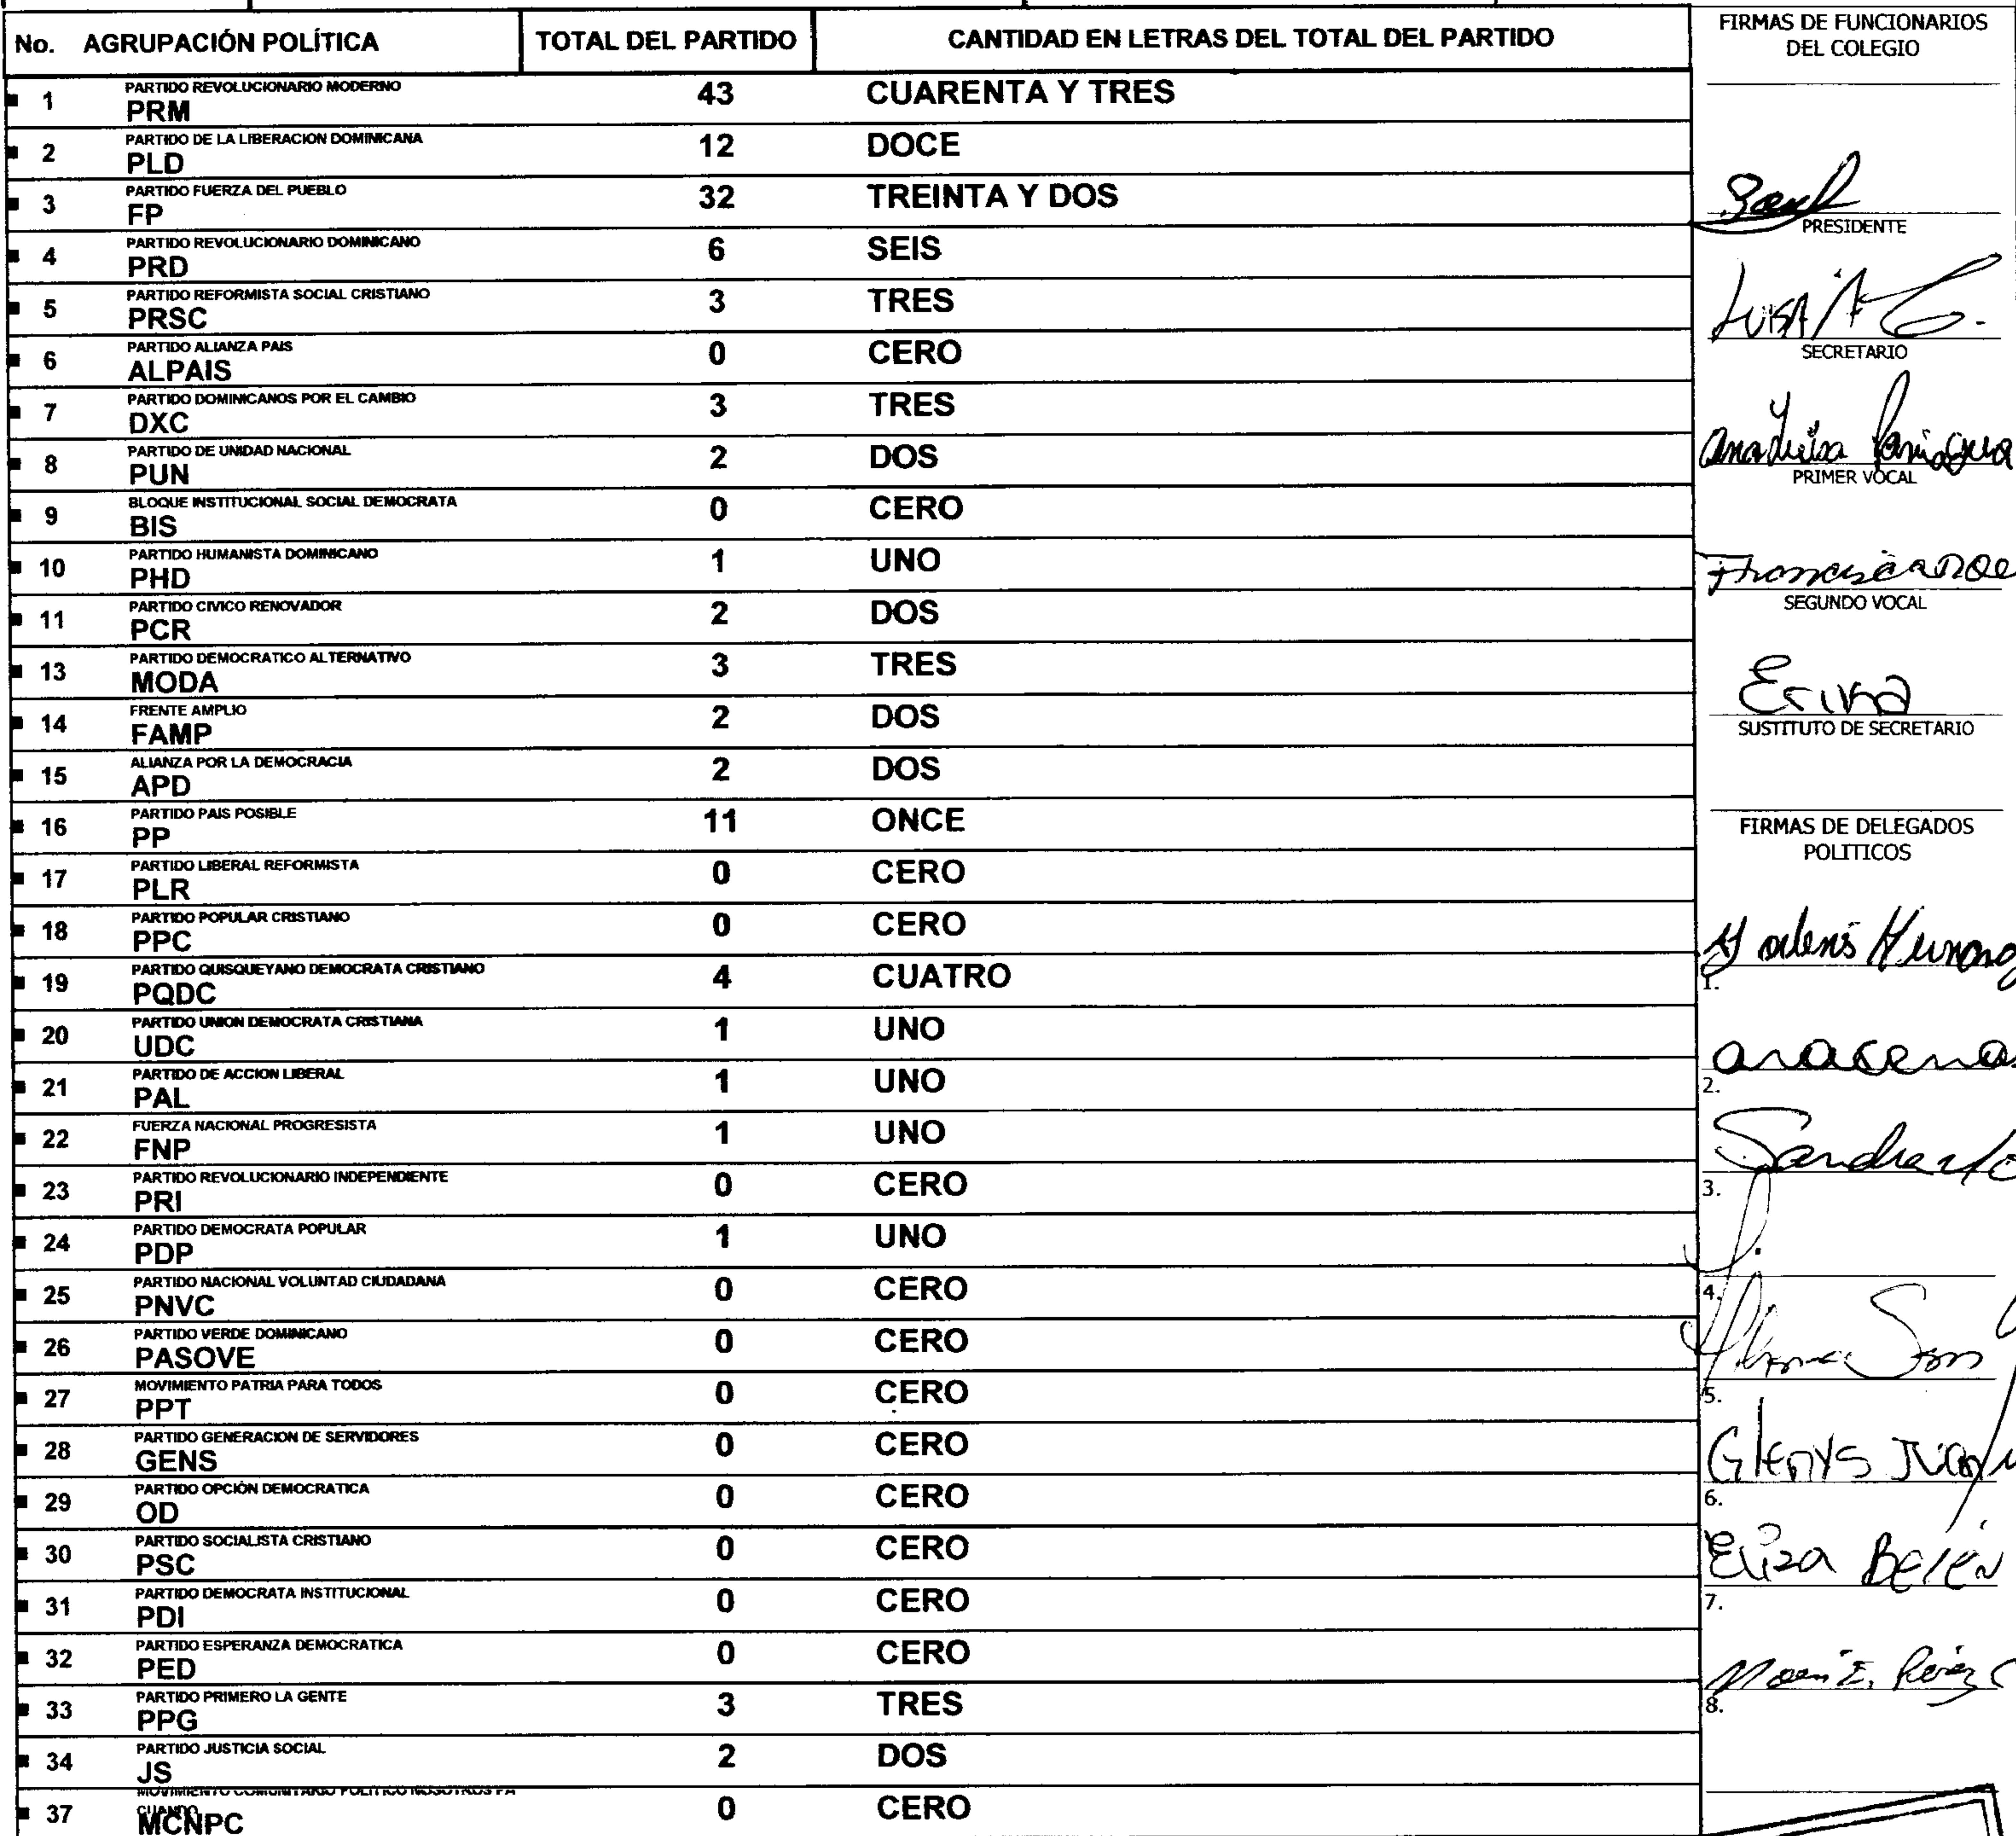 No. AGRUPACIÓN POLÍTICA TOTAL DEL PARTIDO CANTIDAD EN LETRAS DEL TOTAL DEL PARTIDO
PARTIDO REVOLUCIONARIO MODERNO
1 PRM 43 CUARENTA Y TRES
PARTIDO DE LA LIBERACION DOMINICANA
2 PLD 12 DOCE
PARTIDO FUERZA DEL PUEBLO
3 FP 32 TREINTA Y DOS
PARTIDO REVOLUCIONARIO DOMINICANO
4 PRD 6 SEIS
PARTIDO REFORMISTA SOCIAL CRISTIANO
5 PRSC 3 TRES
PARTIDO ALIANZA PAIS
6 ALPAIS 0 CERO
PARTIDO DOMINICANOS POR EL CAMBIO
7 DXC 3 TRES
PARTIDO DE UNIDAD NACIONAL
8 PUN 2 DOS
BLOQUE INSTITUCIONAL SOCIAL DEMOCRATA
9 BIS 0 CERO
PARTIDO HUMANISTA DOMINICANO
10 PHD 1 UNO
PARTIDO CIVICO RENOVADOR
11 PCR 2 DOS
PARTIDO DEMOCRATICO ALTERNATIVO
13 MODA 3 TRES
FRENTE AMPLIO
14 FAMP 2 DOS
ALIANZA POR LA DEMOCRACIA
15 APD 2 DOS
PARTIDO PAIS POSIBLE
16 PP 11 ONCE
PARTIDO LIBERAL REFORMISTA
17 PLR 0 CERO
PARTIDO POPULAR CRISTIANO
18 PPC 0 CERO
PARTIDO QUISQUEYANO DEMOCRATA CRISTIANO
19 PQDC 4 CUATRO
PARTIDO UNION DEMOCRATA CRISTIANA
20 UDC 1 UNO
PARTIDO DE ACCION LIBERAL
21 PAL 1 UNO
FUERZA NACIONAL PROGRESISTA
22 FNP 1 UNO
PARTIDO REVOLUCIONARIO INDEPENDIENTE
23 PRI 0 CERO
PARTIDO DEMOCRATA POPULAR
24 PDP 1 UNO
PARTIDO NACIONAL VOLUNTAD CIUDADANA
25 PNVC 0 CERO
PARTIDO VERDE DOMINICANO
26 PASOVE 0 CERO
MOVIMIENTO PATRIA PARA TODOS
27 PPT 0 CERO
PARTIDO GENERACION DE SERVIDORES
28 GENS 0 CERO
PARTIDO OPCIÓN DEMOCRATICA
29 OD 0 CERO
PARTIDO SOCIALISTA CRISTIANO
30 PSC 0 CERO
PARTIDO DEMOCRATA INSTITUCIONAL
31 PDI 0 CERO
PARTIDO ESPERANZA DEMOCRATICA
32 PED 0 CERO
PARTIDO PRIMERO LA GENTE
33 PPG 3 TRES
PARTIDO JUSTICIA SOCIAL
34 JS 2 DOS
MOVIMIENTO COMUNITARIO POLITICO NOSOTROS PA
CUANDO
37 MCNPC 0 CERO
FIRMAS DE FUNCIONARIOS
DEL COLEGIO
PRESIDENTE
SECRETARIO
PRIMER VOCAL
SEGUNDO VOCAL
SUSTITUTO DE SECRETARIO
FIRMAS DE DELEGADOS
POLITICOS
1.
2.
3.
4.
5.
Glenys
6.
Eliza Belén
7.
8.